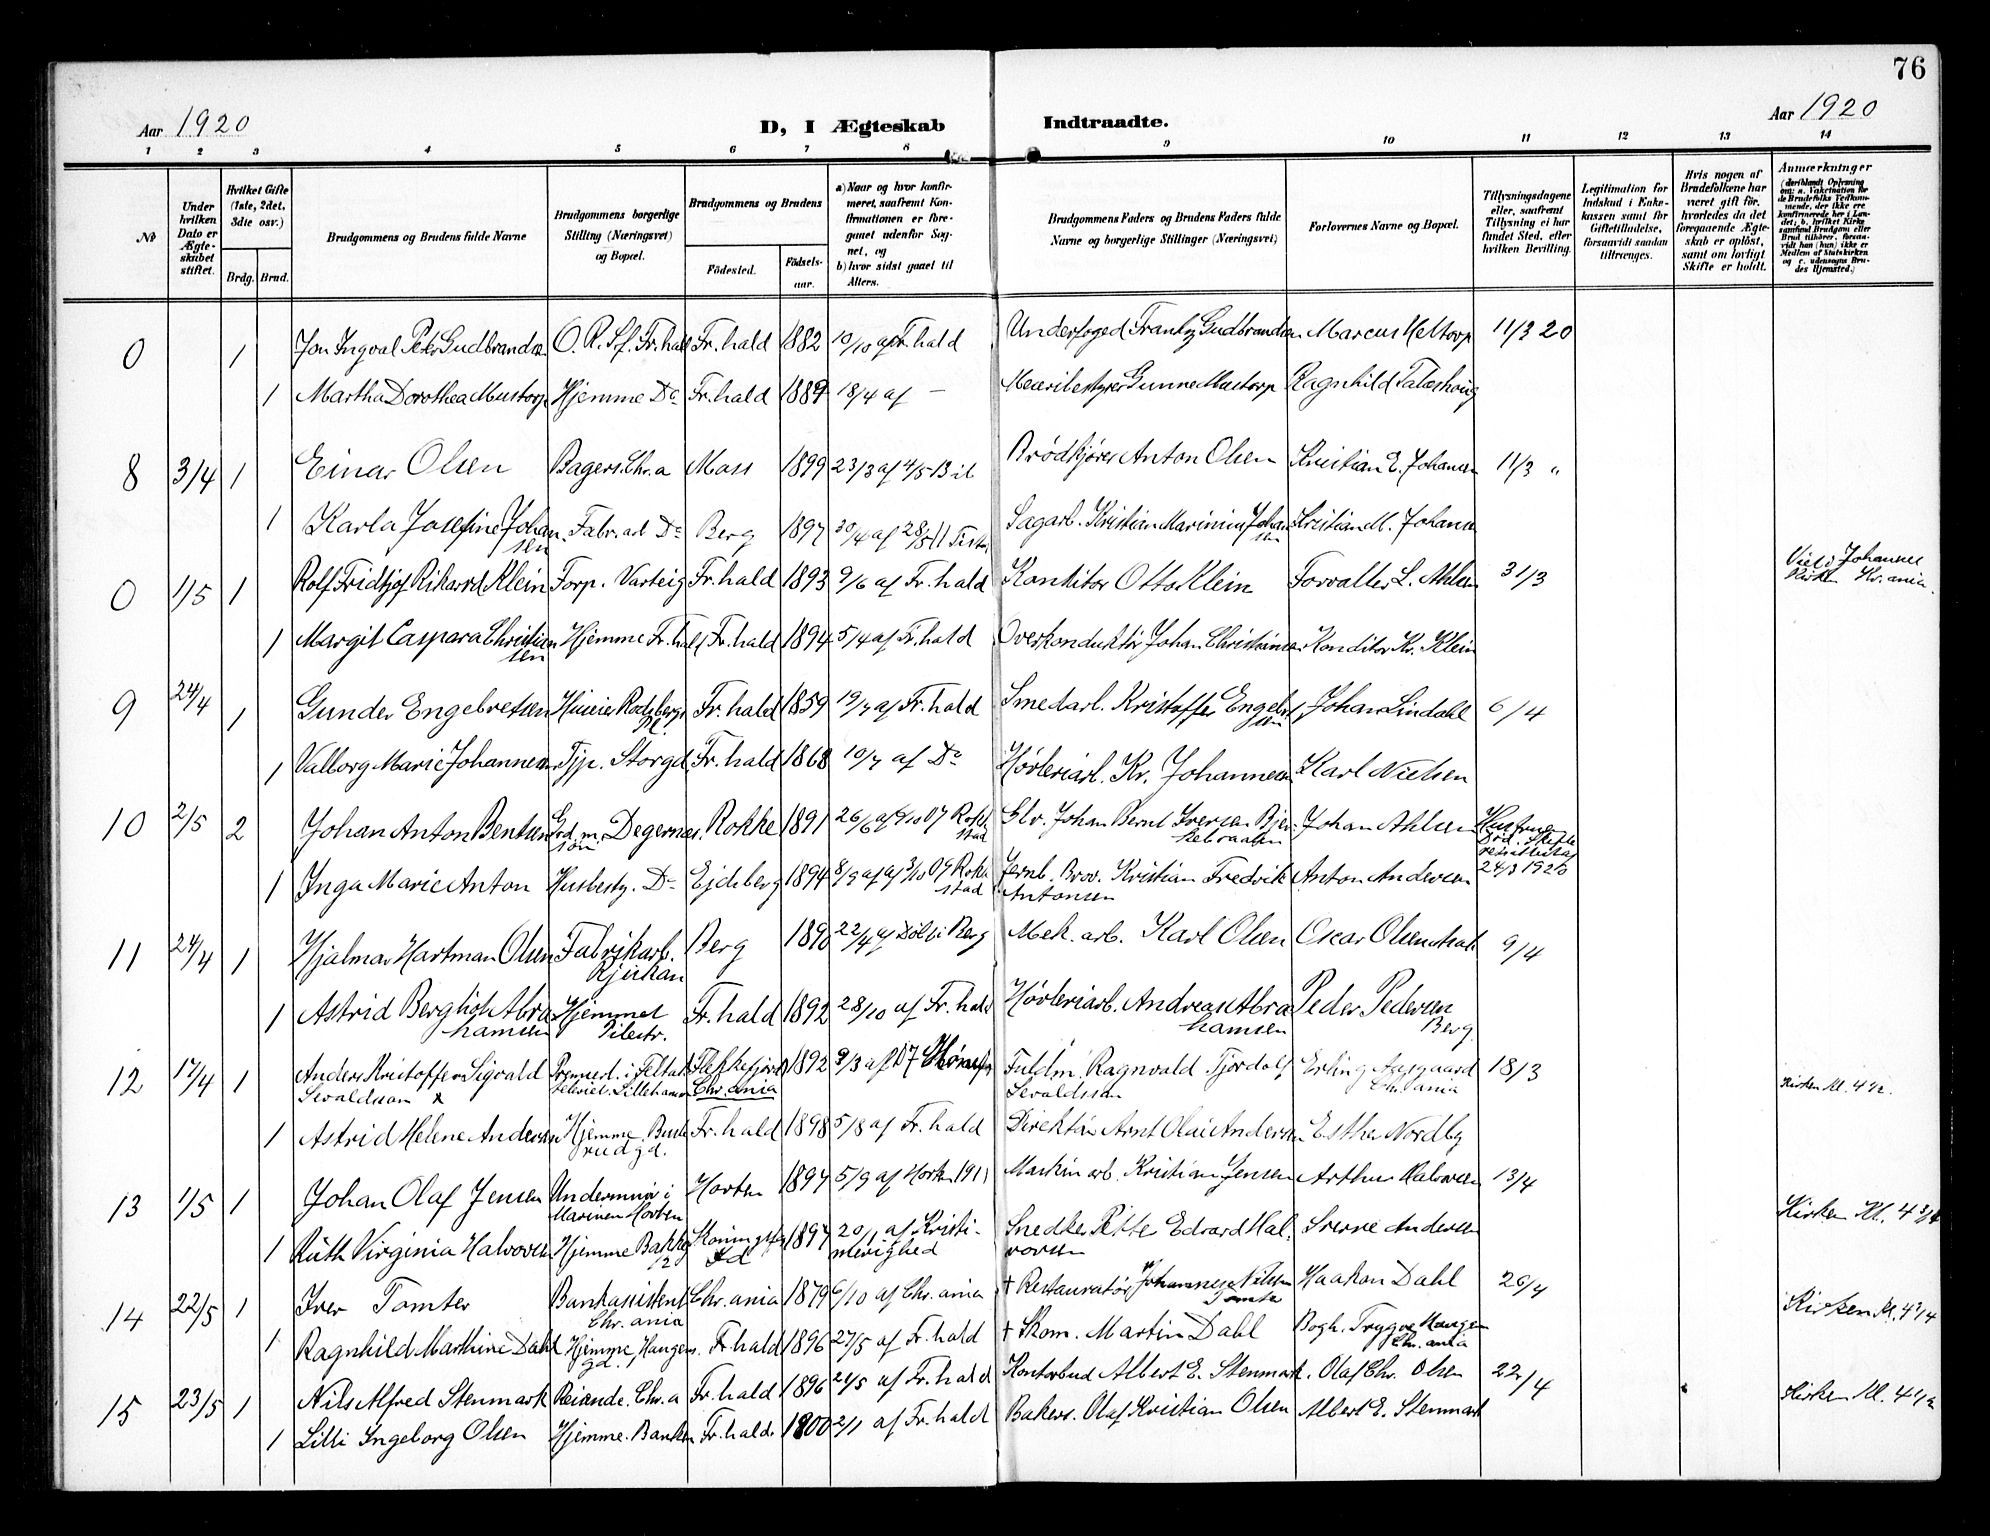 76
Aar 1920
D, I Ægteskab Indtraadte.
Aar 1920
1 2 3 4 5 6 7 8 9 10 11 12 13 14
№
Under hvilken Dato er Ægteskabet stiftet.
Hvilket Gifte (1ste, 2det, 3die osv.)
Brdg. Brud.
Brudgommens og Brudens fulde Navne
Brudgommens borgerlige Stilling (Næringsvei) og Bopæl.
Brudgommens og Brudens
Fødested.
Fødselsaar.
a) Naar og hvor konfirmeret, saafremt Konfirmationen er foregaaet udenfor Sognet, og
b) hvor sidst gaaet til Alters.
Brudgommens Faders og Brudens Faders fulde Navne og borgerlige Stillinger (Næringsvei)
Forlovernes Navne og Bopæl.
Tillysningsdagene eller, saafremt Tillysning ei har fundet Sted, efter hvilken Bevilling.
Legitimation for Indskud i Enkekassen samt for Giftetilladelse, forsaavidt saadan tiltrænges.
Hvis nogen af Brudefolkene har været gift før, hvorledes da det foregaaende Ægteskab er opløst, samt om lovligt Skifte er holdt.
Anmærkninger
0 1 Jon Ingval Peter Gudbrandsen O. R. Sf. Fr.hald Fr.hald 1882 10/10 af Fr.hald Underfoged Frantz Gudbrandsen Marcus Heltorp 11/3 20
1 Martha Dorothea Mustorp Hjemme Do Fr.hald 1889 18/4 af — Meieribestyrer Gunne Mustorp Ragnhild
8 3/4 1 Einar Olsen Bagers. Chr.a Moss 1899 23/3 af 4/5 13 Brødkjører Anton Olsen Kristian E. Johansen 11/3 "
1 Karla Josefine Johansen Fabr.arb Do Berg 1897 30/4 af 28/5 11 Sagarb. Kristian Marinius Johansen Kristian M. Johansen
0 1/5 1 Rolf Fridtjof Rikard Klein Forp. Varteig Fr.hald 1893 9/6 af Fr.hald Konditor Otto Klein Forvalter L. Ahlsen 31/3 Viet i Johannes Kirken Kr.ania.
1 Margit Caspara Christiansen Hjemme Fr.hald Fr.hald 1894 5/4 af Fr.hald Overkonduktør Johan Christiansen Konditor Kr. Klein
9 24/4 1 Gunder Engebretsen Fr.hald 1859 19/7 af Fr.hald Smedarb. Kristoffer Engebretsen Johan Lindahl 6/4
1 Valborg Marie Johannesen Tjp. Storgd. Fr.hald 1868 10/7 af Do Høvleriarb. Kr. Johannesen Karl Nielsen
10 2/5 2 Johan Anton Bentsen Grd.m. søn Degernes. Rokke 1891 26/6 af 07 Rokkestad Glv. Johan Bernt Iversen Johan Ahlsen 24/3 1920
1 Inga Marie Anton Husbesty. Do Ejdsberg 1894 8/9 af 3/10 09 Rokkestad Jernb. Brov. Kristian Fredrik Antonsen Anton Andersen
11 24/4 1 Hjalmar Hartman Olsen Fabrikarb. Rjukan Berg 1890 22/4 af Døl i Berg Mek. arb. Karl Olsen Oscar Olsen 9/4
1 Astrid Bergliot Abrahamsen Hjemmet Pilestr. Fr.hald 1892 28/10 af Fr.hald Høvleriarb. Andreas Abrahamsen Peder Pedersen Berg
12 17/4 1 Anders Kristoffer Sigvald Sevaldsson x Premierl. i Feltartilleriet. Lillehammer Flekkefjord Chr.ania 1892 9/3 af 07 Hønefos Fuldm. Ragnvald Fjørdolf Sevaldsson Erling Aasgaard Chr.ania 18/3 Kirken kl. 4 1/2.
1 Astrid Helene Andersen Hjemme. Buskrudgd. Fr.hald 1898 5/8 af Fr.hald Direktør Arnt Olai Andersen Esther Nordby
13 1/5 1 Johan Olaf Jensen Underminør i Marinen Horten Horten 1897 5/9 af Horten 1911 Maskin arb. Kristian Jensen Arthur Halvorsen 13/4 Kirken Kl. 4 3/4
1 Ruth Virginia Halvorsen Hjemme Bakkeg 12 1897 20/1 af Kristi- menighed Snedker Peter Edvard Halvorsen Sverre Andersen
14 22/5 1 Iver Tomter Bankassistent Chr.ania Chr.ania 1879 6/10 af Chr.ania † Restauratør Johannes Nilsen Tomter Haakon Dahl 26/4 Kirken Kl. 4 3/4
1 Ragnhild Marthine Dahl Hjemme, Haugens gd. Fr.hald 1896 27/5 af Fr.hald † Skom. Martin Dahl Bogh. Trygve Haugen Chr.ania
15 23/5 1 Nils Alfred Stenmark Reisende. Chr.a Fr.hald 1896 21/5 af Fr.hald Kontorbud Albert E. Stenmark. Olaf Chr. Olsen 22/4 Kirken Kl. 4 1/2
1 Lilli Ingeborg Olsen Hjemme. Banken Fr.hald. 1900 2/1 af Fr.hald Bakers. Olaf Kristian Olsen Albert E. Stenmark